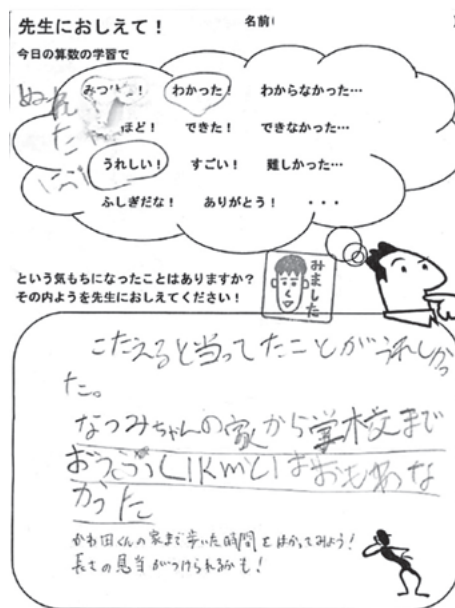 先生におしえて！
名前(
今日の算数の学習で
わかった！ わからなかった…
ほど！ できた！ できなかった…
うれしい！ すごい！ 難しかった…
ふしぎだな！ ありがとう！ ・・・
という気もちになったことはありますか？
その内ようを先生におしえてください！
みました
こたえると当ってたことがうれしかっ
た。
なつみちゃんの家から学校まで
おうふく1kmとはおもわな
かった
かわ田くんの家まで歩いた時間をはかってみよう！
長さの見当がつけられるかも！